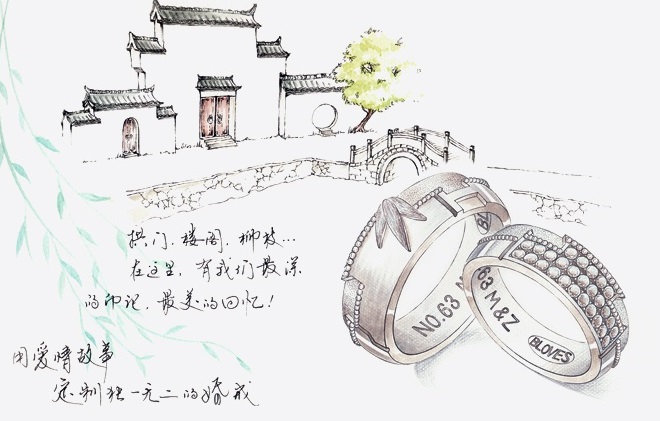 拱门、楼阁、柳枝…
在这里，有我们最深
的印记，最美的回忆！
用爱情故事
定制独一无二的婚戒
NO.63 M
63 M&Z
BLOVES